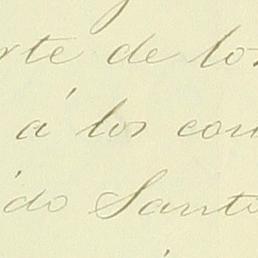 rte de los
á los con
ido Santo